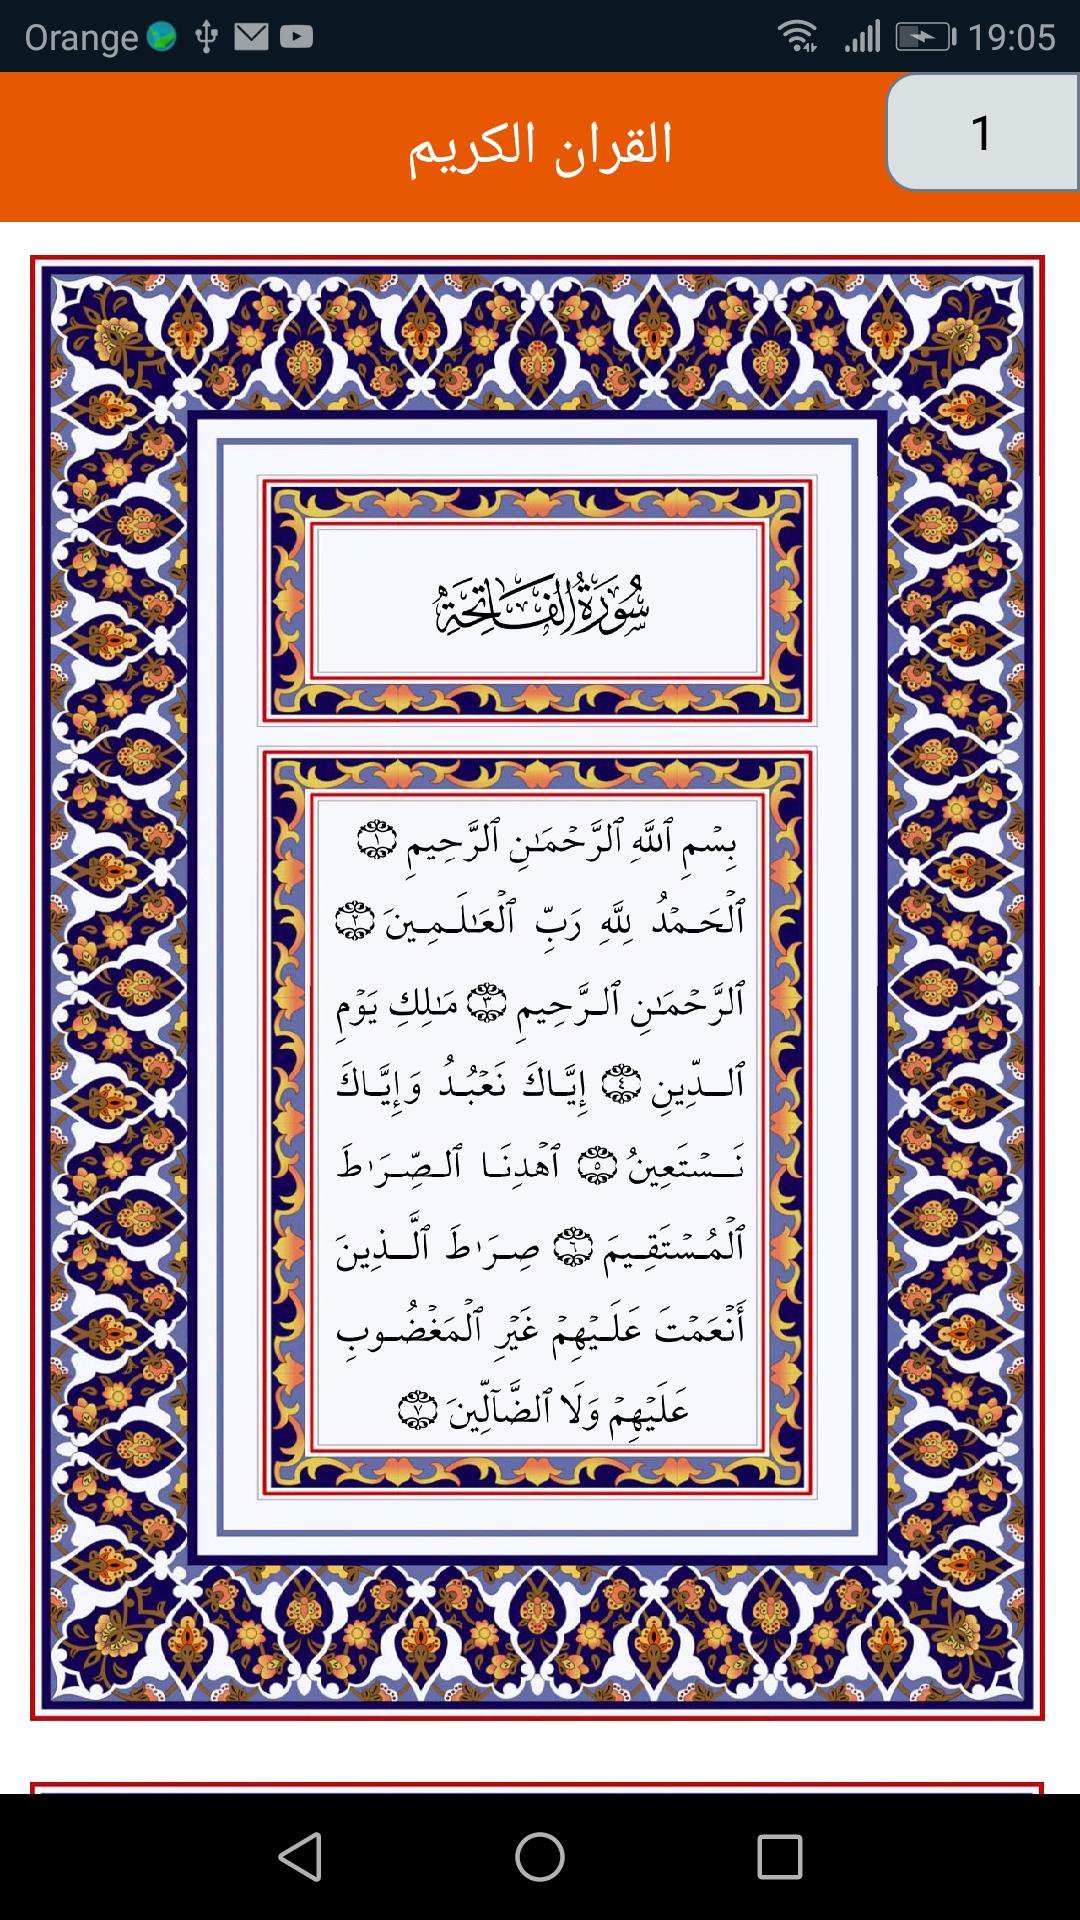 Orange 19:05
القران الكريم
1
سُورَةُ الْفَاتِحَةِ
بِسْمِ ٱللَّهِ ٱلرَّحْمَـٰنِ ٱلرَّحِيمِ ۝١
ٱلْحَمْدُ لِلَّهِ رَبِّ ٱلْعَـٰلَمِينَ ۝٢
ٱلرَّحْمَـٰنِ ٱلرَّحِيمِ ۝٣ مَـٰلِكِ يَوْمِ
ٱلدِّينِ ۝٤ إِيَّاكَ نَعْبُدُ وَإِيَّاكَ
نَسْتَعِينُ ۝٥ ٱهْدِنَا ٱلصِّرَٰطَ
ٱلْمُسْتَقِيمَ ۝٦ صِرَٰطَ ٱلَّذِينَ
أَنْعَمْتَ عَلَيْهِمْ غَيْرِ ٱلْمَغْضُوبِ
عَلَيْهِمْ وَلَا ٱلضَّآلِّينَ ۝٧